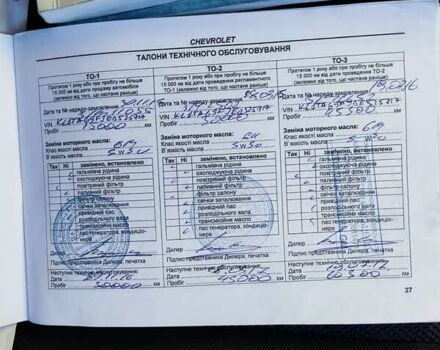 CHEVROLET
ТАЛОНИ ТЕХНІЧНОГО ОБСЛУГОВУВАННЯ
ТО-1
Протягом 1 року або при пробігу не більше
15 000 км від дати продажу автомобіля
(залежно від того, що настане раніше)
Дата та № наряду-замовлення
VIN
Пробіг 15000 км
Заміна моторного масла:
Клас якості масла
В'язкість масла
Так Ні замінено, встановлено
гальмівна рідина
охолоджуюча рідина
повітряний фільтр
паливний фільтр
фільтр салону
свічки запалювання
привідний пас
розподільчого вала
трансмісійне масло
пас генератора, кондиціо-
нера
Дилер
Підпис представника Дилера, печатка
Наступне технічне обслуговування:
Дата
Пробіг 30000 км
ТО-2
Протягом 1 року або при пробігу не більше
15 000 км від дати проведення регламентного
ТО-1 (залежно від того, що настане раніше)
Дата та № наряду-замовлення
VIN
Пробіг км
Заміна моторного масла:
Клас якості масла
В'язкість масла 5W30
Так Ні замінено, встановлено
гальмівна рідина
охолоджуюча рідина
повітряний фільтр
паливний фільтр
фільтр салону
свічки запалювання
привідний пас
розподільчого вала
трансмісійне масло
пас генератора, кондиціо-
нера
Дилер
Підпис представника Дилера, печатка
Наступне технічне обслуговування:
Дата
Пробіг 45000 км
ТО-3
Протягом 1 року або при пробігу не більше
15 000 км від дати проведення ТО-2
(залежно від того, що настане раніше)
Дата та № наряду-замовлення
VIN
Пробіг 45500 км
Заміна моторного масла:
Клас якості масла
В'язкість масла
Так Ні замінено, встановлено
гальмівна рідина
охолоджуюча рідина
повітряний фільтр
паливний фільтр
фільтр салону
свічки запалювання
привідний пас
розподільчого вала
трансмісійне масло
пас генератора, кондиціо-
нера
Дилер
Підпис представника Дилера, печатка
Наступне технічне обслуговування:
Дата
Пробіг 60500 км
27